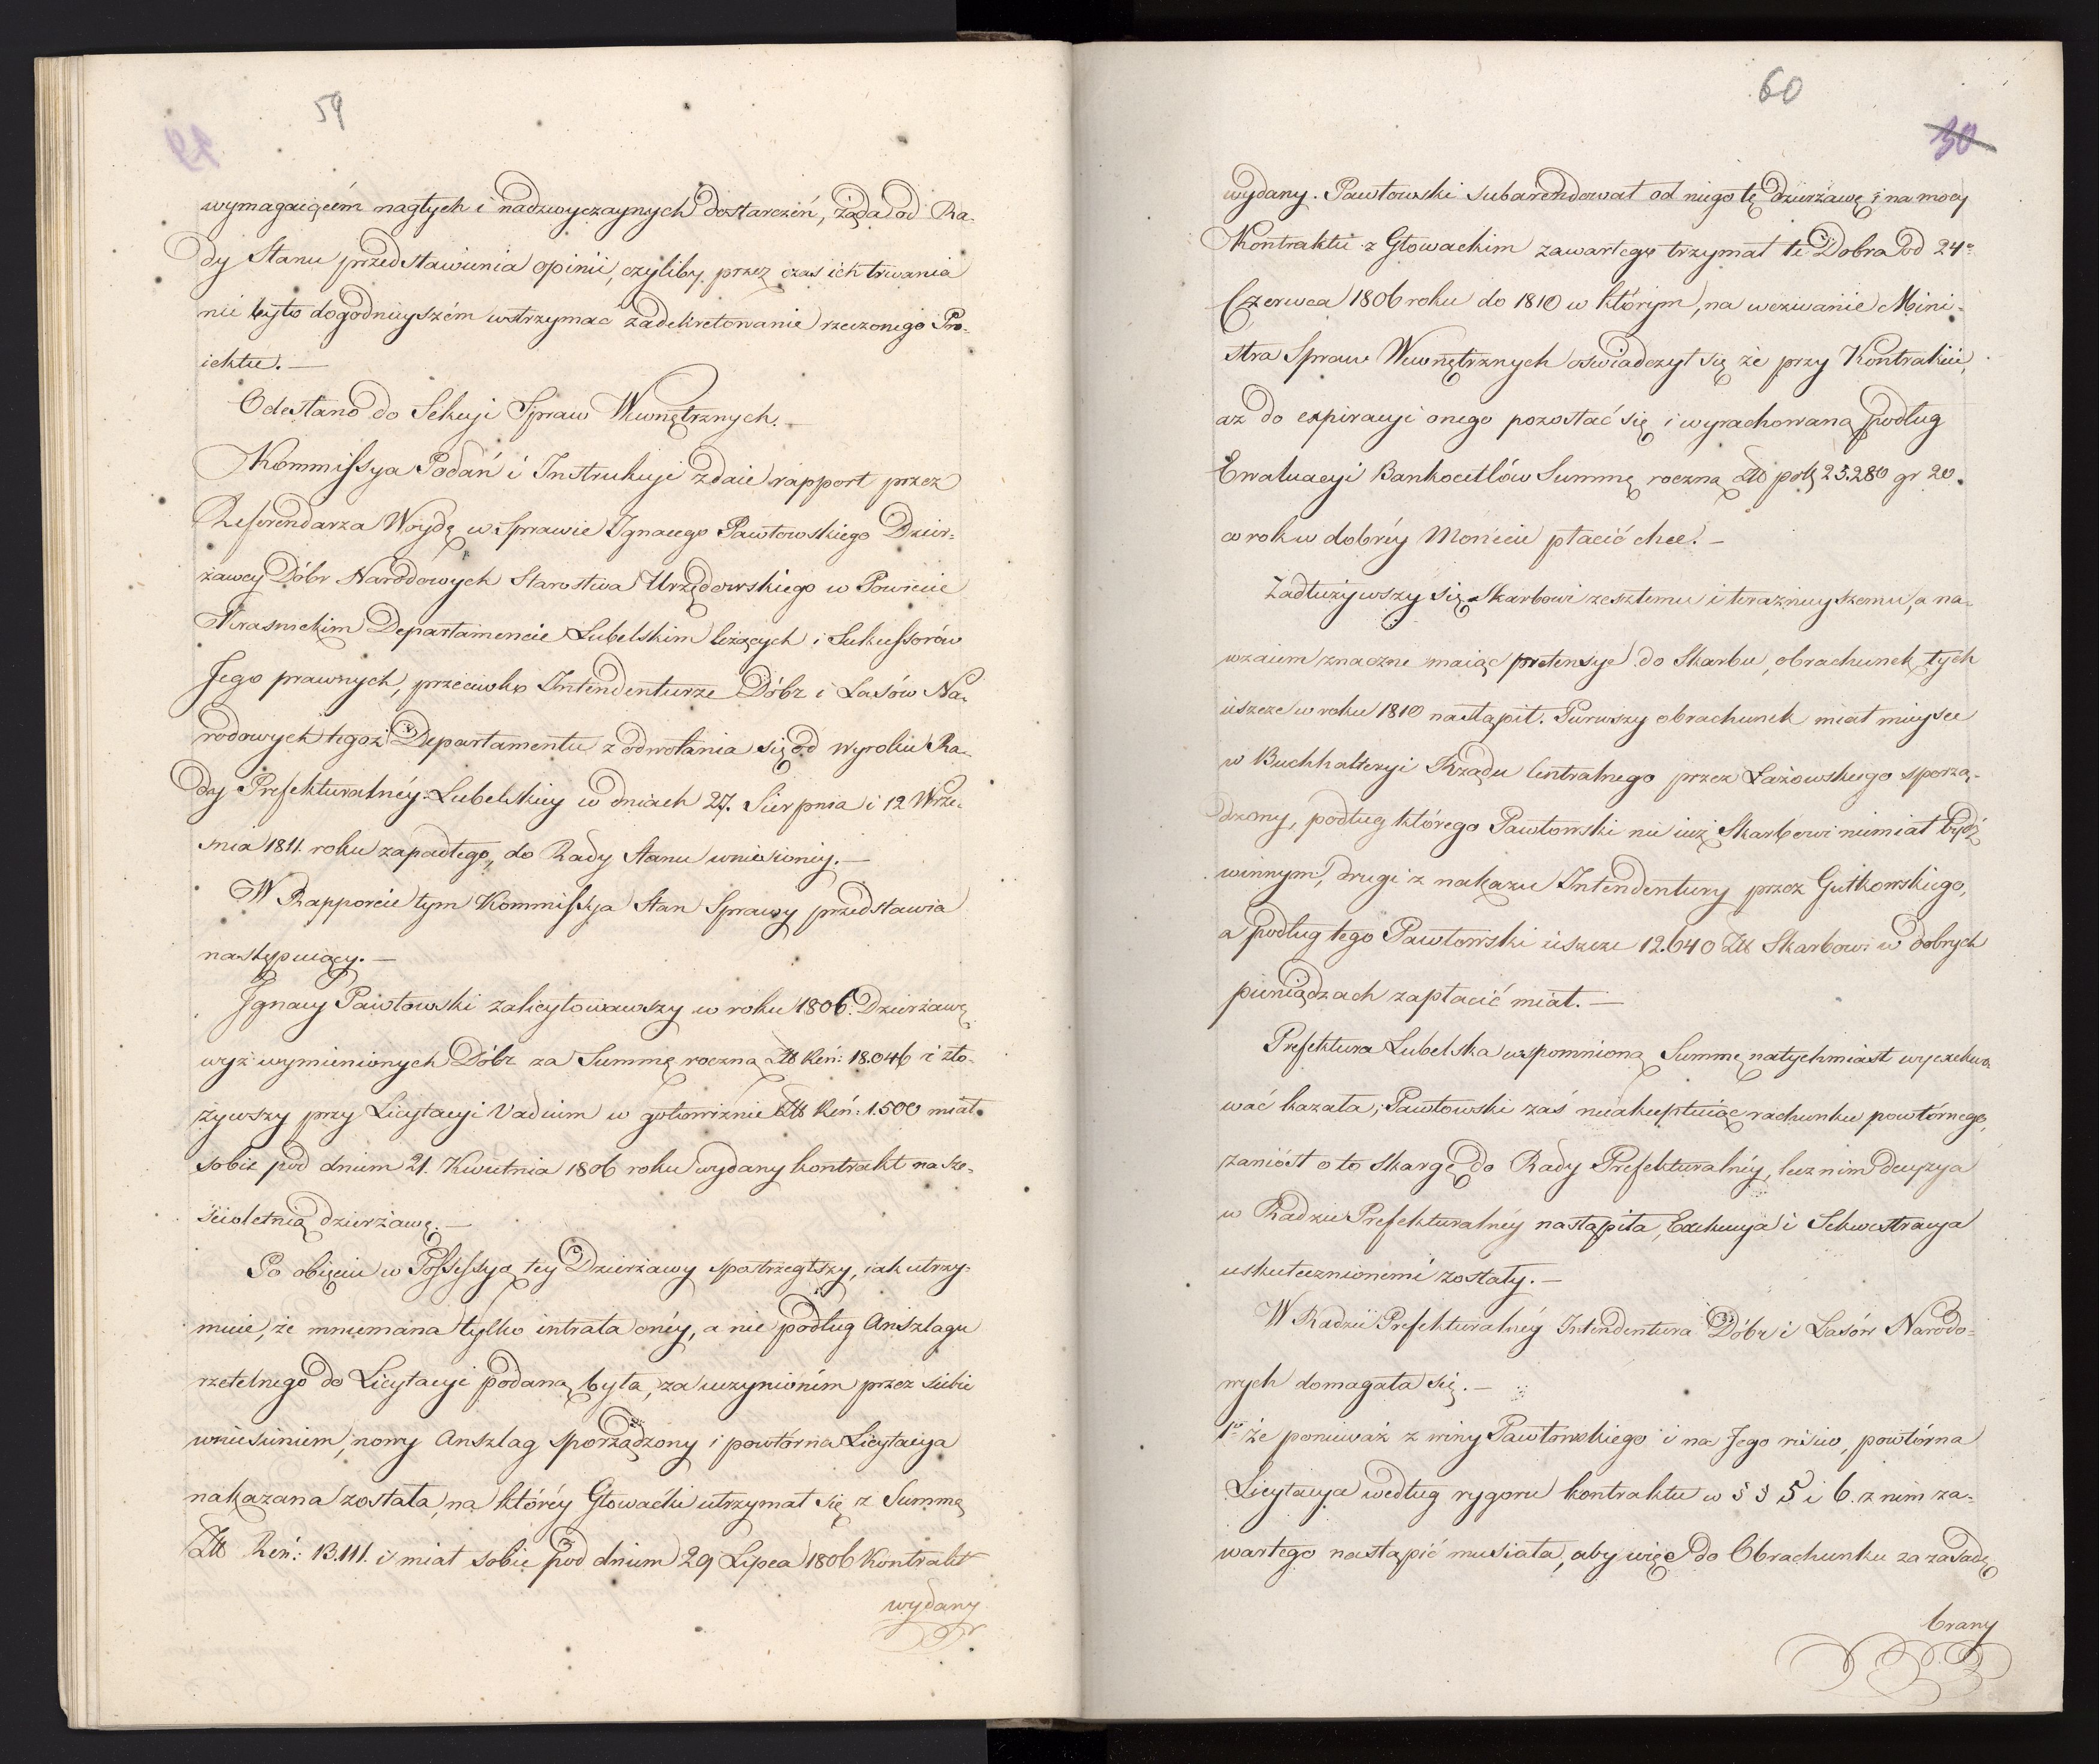 59
wymagaiącém nagłych i nadzwyczaynych dostarczeń, żąda od Ra-
dy Stanu przedstawienia opinii, czyliby przez czas ich trwania
nie było dogodnieyszém wstrzymać zadekretowanie rzeczonego Pro-
iektu. —
Odesłano do Sekcyi Spraw Wewnętrznych. —
Kommissya Podań i Instrukcyi zdaie rapport przez
Referendarza Woydę w Sprawie Ignacego Pawłowskiego Dzier-
żawcy Dóbr Narodowych Starostwa Urzędowskiego w Powiecie
Krasnickim Departamencie Lubelskim leżących i Sukcessorów
Jego prawnych, przeciwko Intendenturze Dóbr i Lasów Na-
rodowych tegoż Departamentu z odwołania się od wyroku Ra-
dy Prefekturalnéy Lubelskiey w dniach 27. Sierpnia i 12 Wrze-
śnia 1811. roku zapadłego, do Rady Stanu wniesioney. —
W Rapporcie tym Kommissya Stan Sprawy przedstawia
następuiący. —
Ignacy Pawłowski zalicytowawszy w roku 1806. Dzierżawę
wyż wymienionych Dóbr za Summę roczną Zł Reń: 18.046 i zło-
żywszy przy Licytacyi Vadium w gotowiznie Zł Reń: 1.500 miał
sobie pod dniem 21. Kwietnia 1806 roku wydany kontrakt na sze-
ścioletnią dzierżawę. —
Po obięciu w Possessyą tey Dzierżawy spostrzegłszy, iak utrzy-
muie, że mniemana tylko intrata onéy, a nie podług Anszlagu
rzetelnego do Licytacyi podaną była, za uczynioném przez siebie
wniesieniem, nowy Anszlag sporządzony i powtórna Licytacya
nakazana została, na któréy Głowacki utrzymał się z Summą
Zł Reń: 13.111. i miał sobie pod dniem 29 Lipca 1806 Kontrakt
wydany
60
30
wydany. Pawłowski subarendował od niego tę dzierżawę i na mocy
Kontraktu z Głowackim zawartego trzymał te Dobra od 24o
Czerwca 1806 roku do 1810 w którym, na wezwanie Mini-
stra Spraw Wewnętrznych oświadczył się że przy Kontrakcie,
aż do expiracyi onego pozostać się i wyrachowaną podług
Ewaluacyi Bankocetlów Summę roczną Zł pols 25.280 gr 20.
co rok w dobréy Monecie płacić chce. —
Zadłużywszy się Skarbowi zeszłemu i teraznieyszemu, a na-
wzaiem znaczne maiąc pretensye do Skarbu, obrachunek tych
ieszcze w roku 1810 nastąpił. Pierwszy obrachunek miał mieysce
w Buchhalteryi Rządu Centralnego przez Łażowskiego sporzą-
dzony, podług którego Pawłowski nic iuż Skarbowi niemiał bydź
winnym, drugi z nakazu Intendentury przez Gutkowskiego,
a podług tego Pawłowski ieszcze 12.640 Zł Skarbowi w dobrych
pieniądzach zapłacić miał. —
Prefektura Lubelska wspomnioną Summę natychmiast wyexekwo-
wać kazała, Pawłowski zaś nieakceptuiąc rachunku powtórnego,
zaniósł o to skargę do Rady Prefekturalnéy, lecz nim decyzya
w Radzie Prefekturalnéy nastąpiła, Exekucya i Sekwestracya
uskutecznionemi zostały. —
W Radzie Prefekturalnéy Intendentura Dóbr i Lasów Narodo-
wych domagała się. —
1o że ponieważ z winy Pawłowskiego i na Jego risico, powtórna
Licytacya według rygoru kontraktu w § § 5 i 6. z nim za-
wartego nastąpić musiała, aby więc do Obrachunku za zasadę
brany